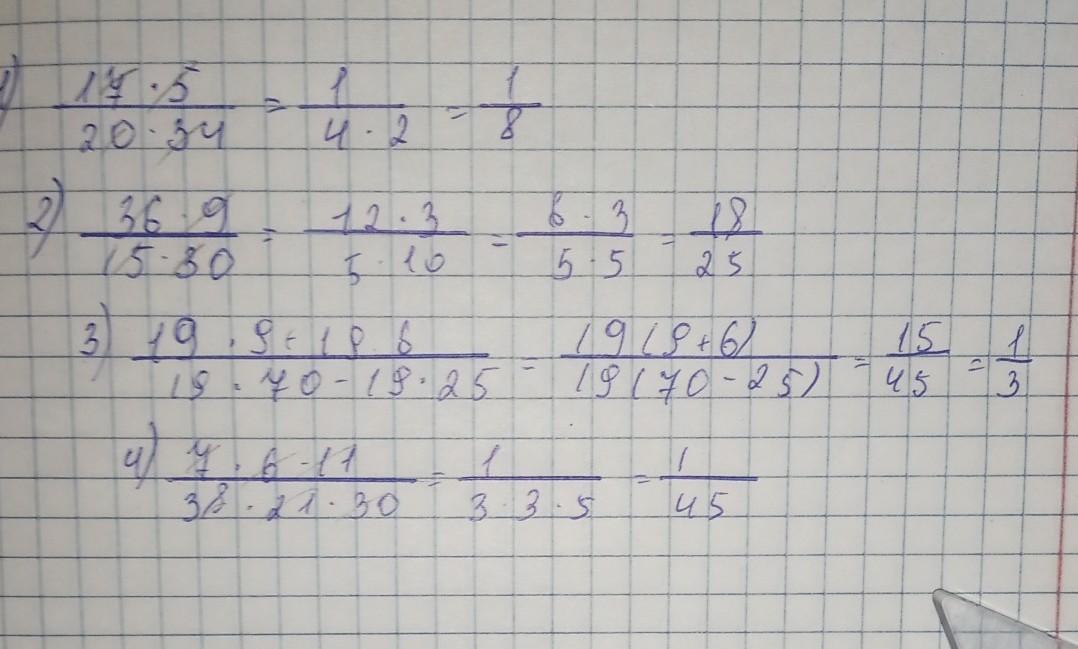 1) (17 · 5)/(20 · 34) = 1/(4 · 2) = 1/8
2) (36 · 9)/(15 · 30) = (12 · 3)/(5 · 10) = (6 · 3)/(5 · 5) = 18/25
3) (19 · 9 + 19 · 6)/(19 · 70 - 19 · 25) = 19(9+6)/19(70-25) = 15/45 = 1/3
4) (7 · 6 · 11)/(33 · 21 · 30) = 1/(3 · 3 · 5) = 1/45